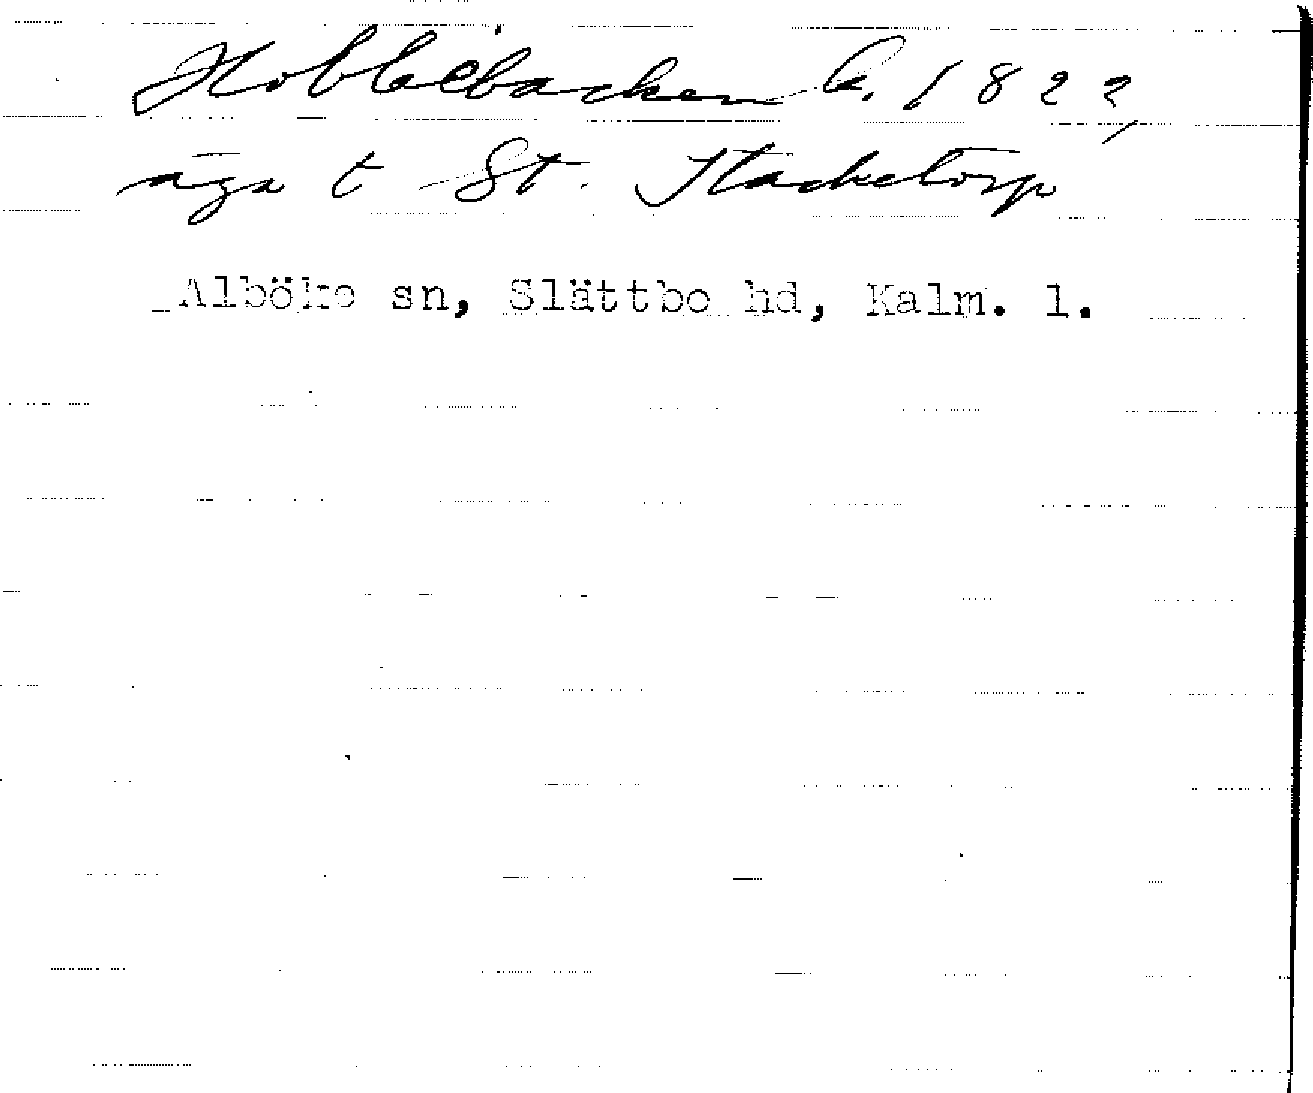 Hobblebacken k. 1822,
äga t St. Häcketorp
Alböke sn, Slättbo hd, Kalm. l.